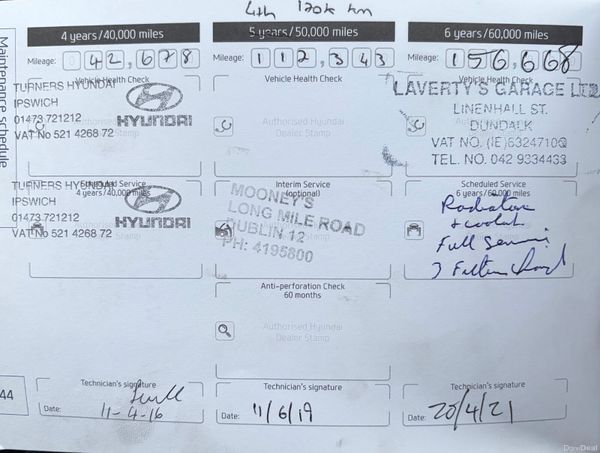 4th 170k km
Maintenance schedule
4 years/40,000 miles
Mileage: 042,678
Vehicle Health Check
TURNERS HYUNDAI
IPSWICH
01473 721212
VAT No 521 4268 72
HYUNDAI
Authorised Hyundai
Dealer Stamp
Scheduled Service
4 years/40,000 miles
TURNERS HYUNDAI
IPSWICH
01473 721212
VAT No 521 4268 72
HYUNDAI
Technician's signature
Date: 11-4-16
5 years/50,000 miles
Mileage: 112,343
Vehicle Health Check
Authorised Hyundai
Dealer Stamp
Interim Service
(optional)
MOONEY'S
LONG MILE ROAD
DUBLIN 12
PH: 4195800
Anti-perforation Check
60 months
Authorised Hyundai
Dealer Stamp
Technician's signature
Date: 11/6/19
6 years/60,000 miles
Mileage: 156,668
Vehicle Health Check
LAVERTY'S GARAGE LTD
LINENHALL ST.
DUNDALK
VAT NO. (IE)6324710Q
TEL. NO. 042 9334433
Scheduled Service
6 years/60,000 miles
Radiator
+ coolant
Full Service
3 Filters
Technician's signature
Date: 20/4/21
44
DoneDeal